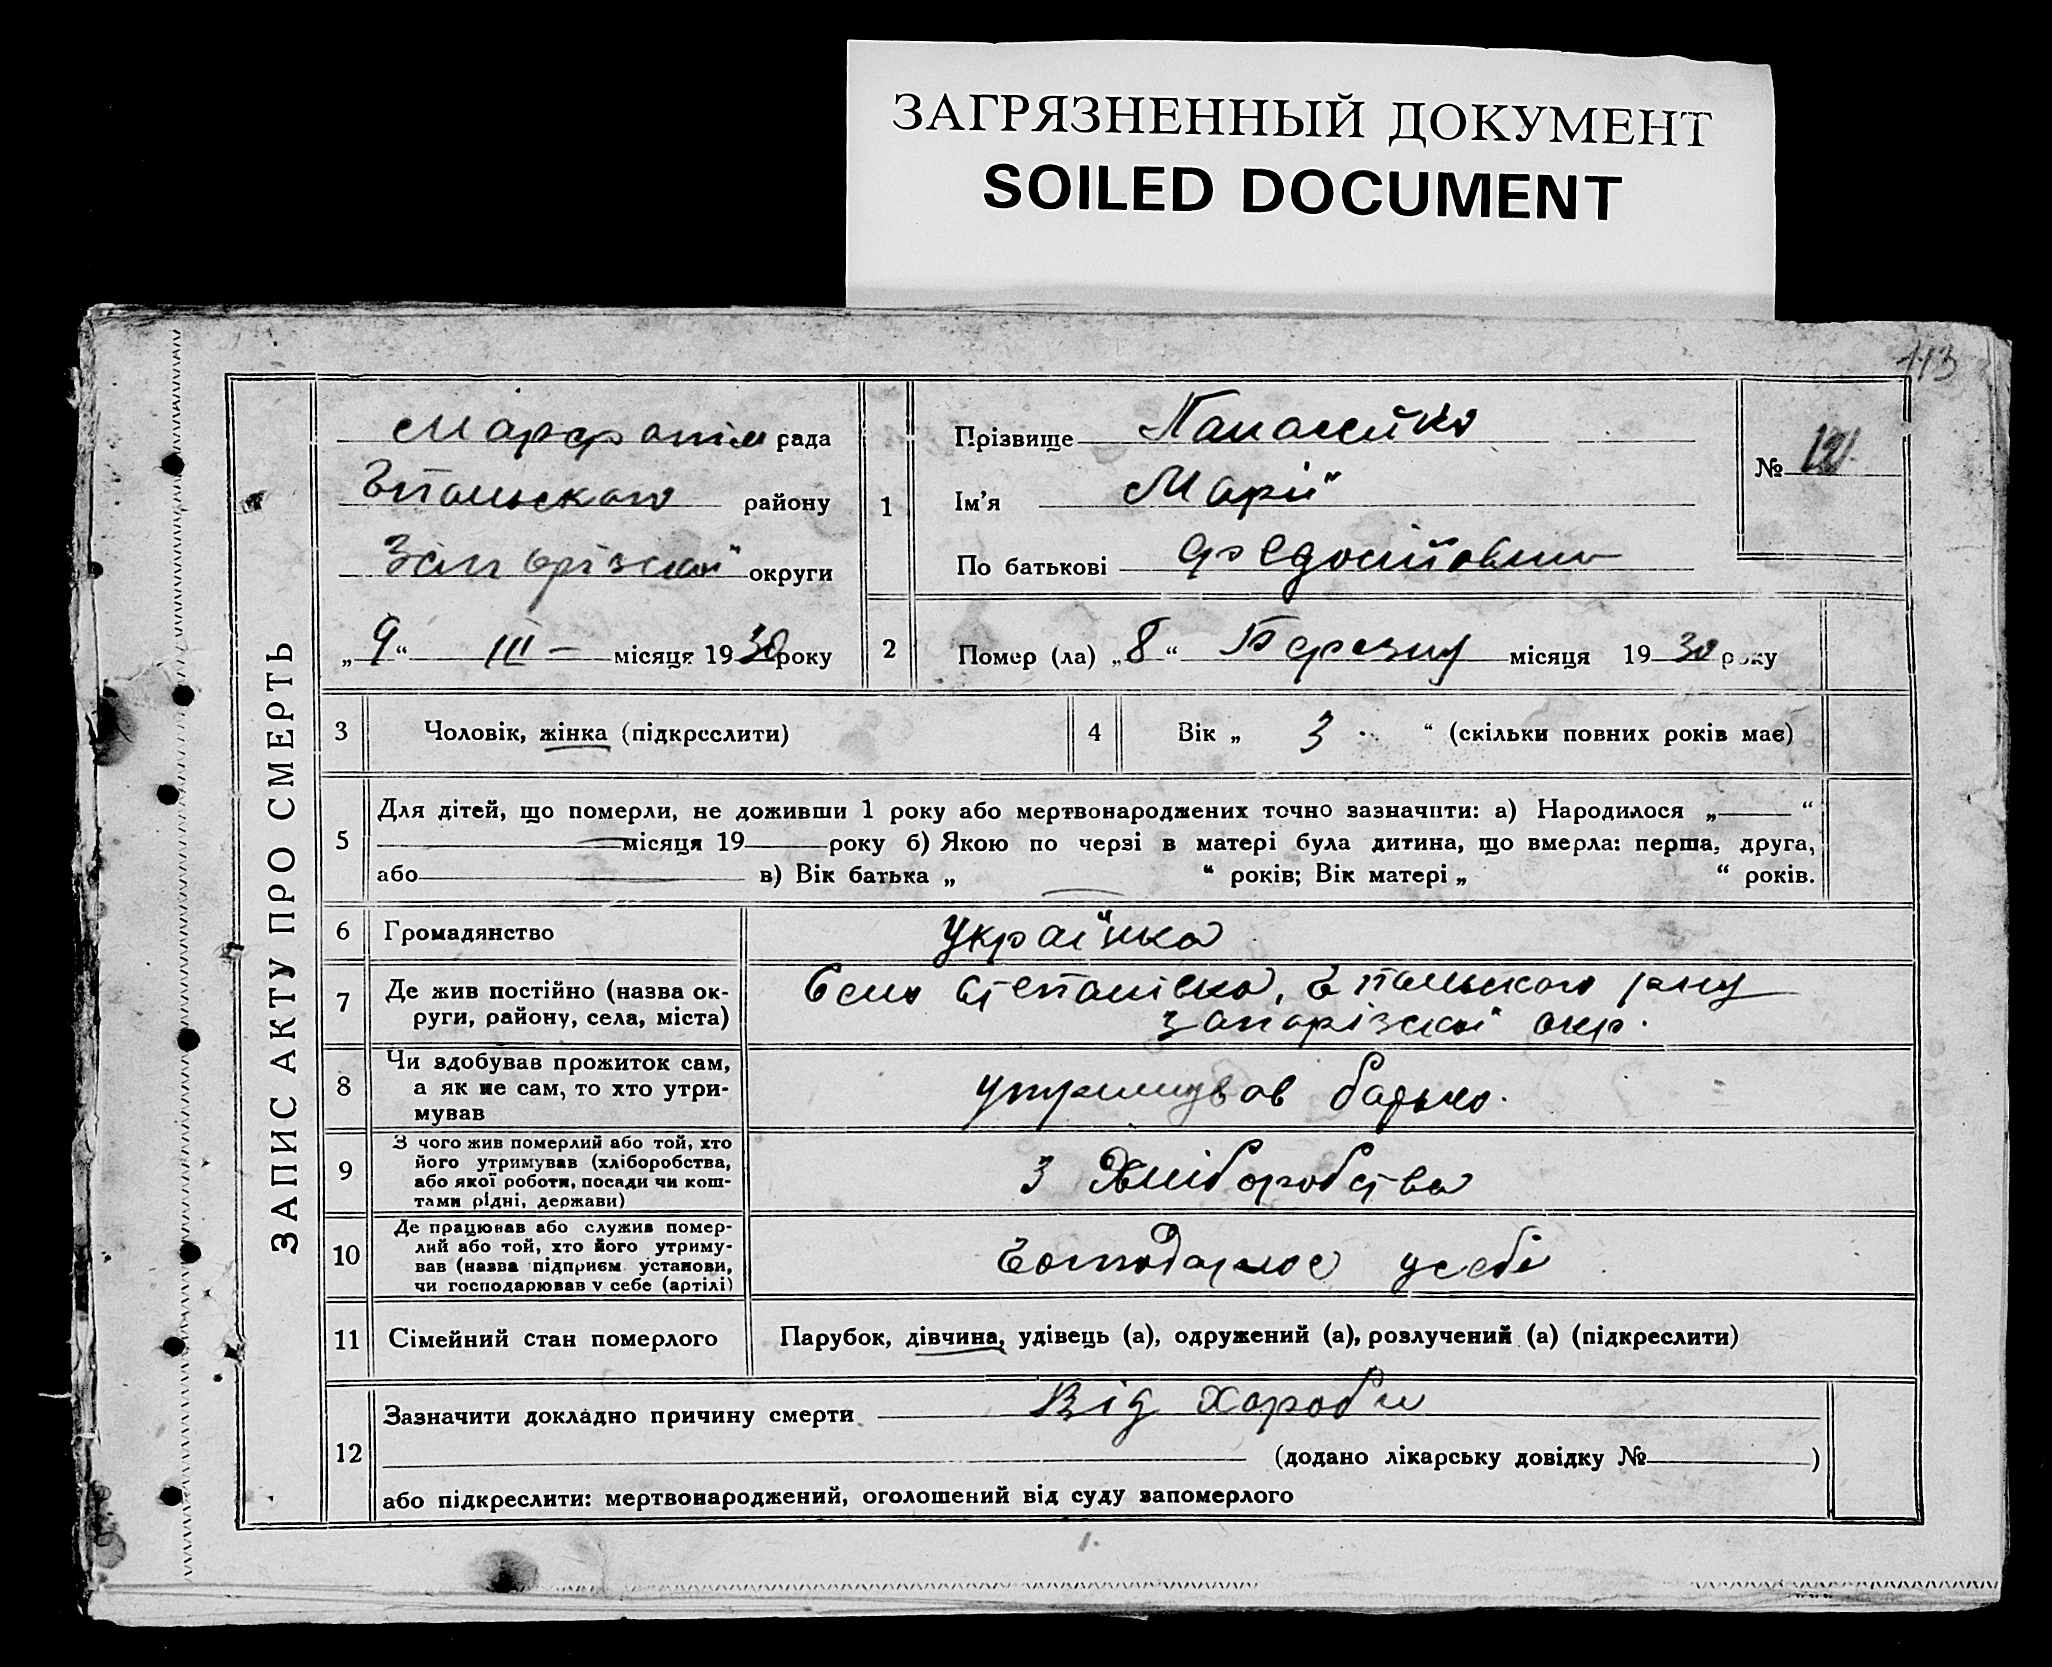 ЗАГРЯЗНЕННЫЙ ДОКУМЕНТ
SOILED DOCUMENT
113
ЗАПИС АКТУ ПРО СМЕРТЬ
рада
району
Запорізської округи
„9“ III – місяця 1930 року
1
Прізвище Панасейко
Ім'я Марії
По батькові
№ 121
2
Помер (ла) „8“ Березня місяця 1930 року
3
Чоловік, жінка (підкреслити)
4
Вік „ 3 “ (скільки повних років має)
5
Для дітей, що померли, не доживши 1 року або мертвонароджених точно зазначити: а) Народилося „ “
місяця 19 року б) Якою по черзі в матері була дитина, що вмерла: перша, друга,
або в) Вік батька „ “ років; Вік матері „ “ років.
6
Громадянство
українка
7
Де жив постійно (назва ок-
руги, району, села, міста)
Село Степанівка,
запорізскої окр.
8
Чи здобував прожиток сам,
а як не сам, то хто утри-
мував
утримував батько.
9
З чого жив померлий або той, хто
його утримував (хліборобства,
або якої роботи, посади чи кош-
тами рідні, держави)
з Хліборобства
10
Де працював або служив помер-
лий або той, хто його утриму-
вав (назва підприєм. установи,
чи господарював у себе (артілі)
усебе
11
Сімейний стан померлого
Парубок, дівчина, удівець (а), одружений (а), розлучений (а) (підкреслити)
12
Зазначити докладно причину смерти Від хороби
(додано лікарську довідку № )
або підкреслити: мертвонароджений, оголошений від суду запомерлого
1.